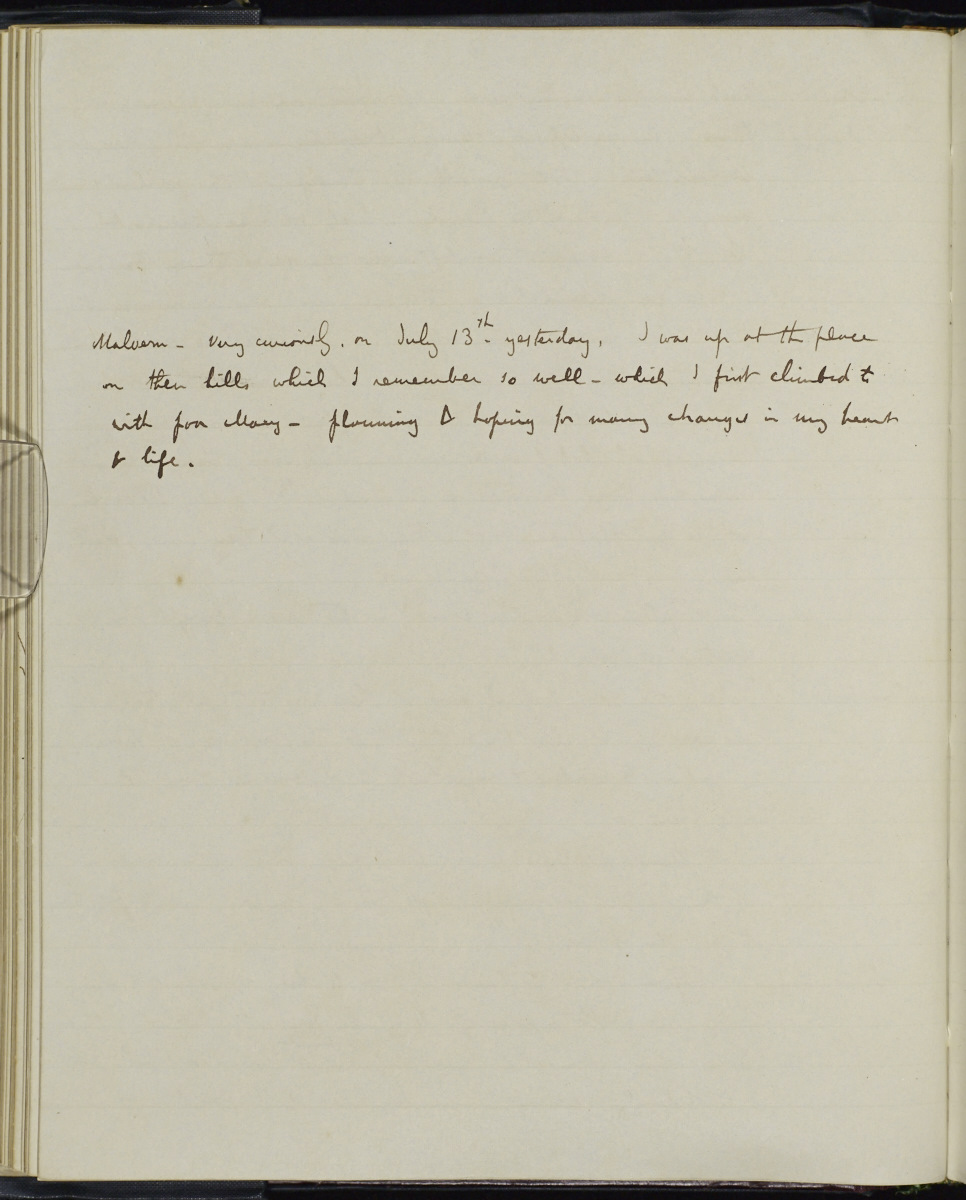 Malvern - Very curiously, on July 13th - yesterday, I was up at the place
on these hills which I remember so well - which I first climbed to
with poor Mary - planning & hoping for many changes in my heart
& life.